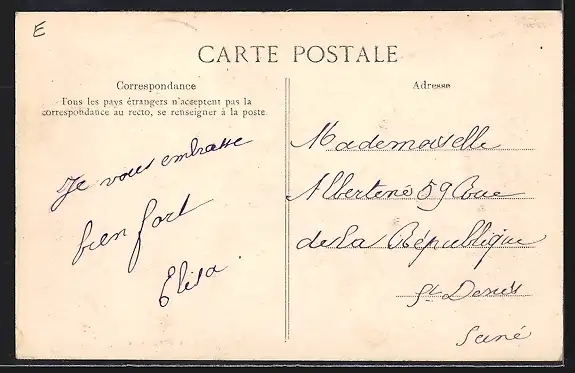 E
CARTE POSTALE
Correspondance
Tous les pays étrangers n'acceptent pas la
correspondance au recto, se renseigner à la poste
Je vous embrasse
bien fort
Elisa
Adresse
Mademoiselle
Albertine 59 Rue
de la République
St Denis
Seine